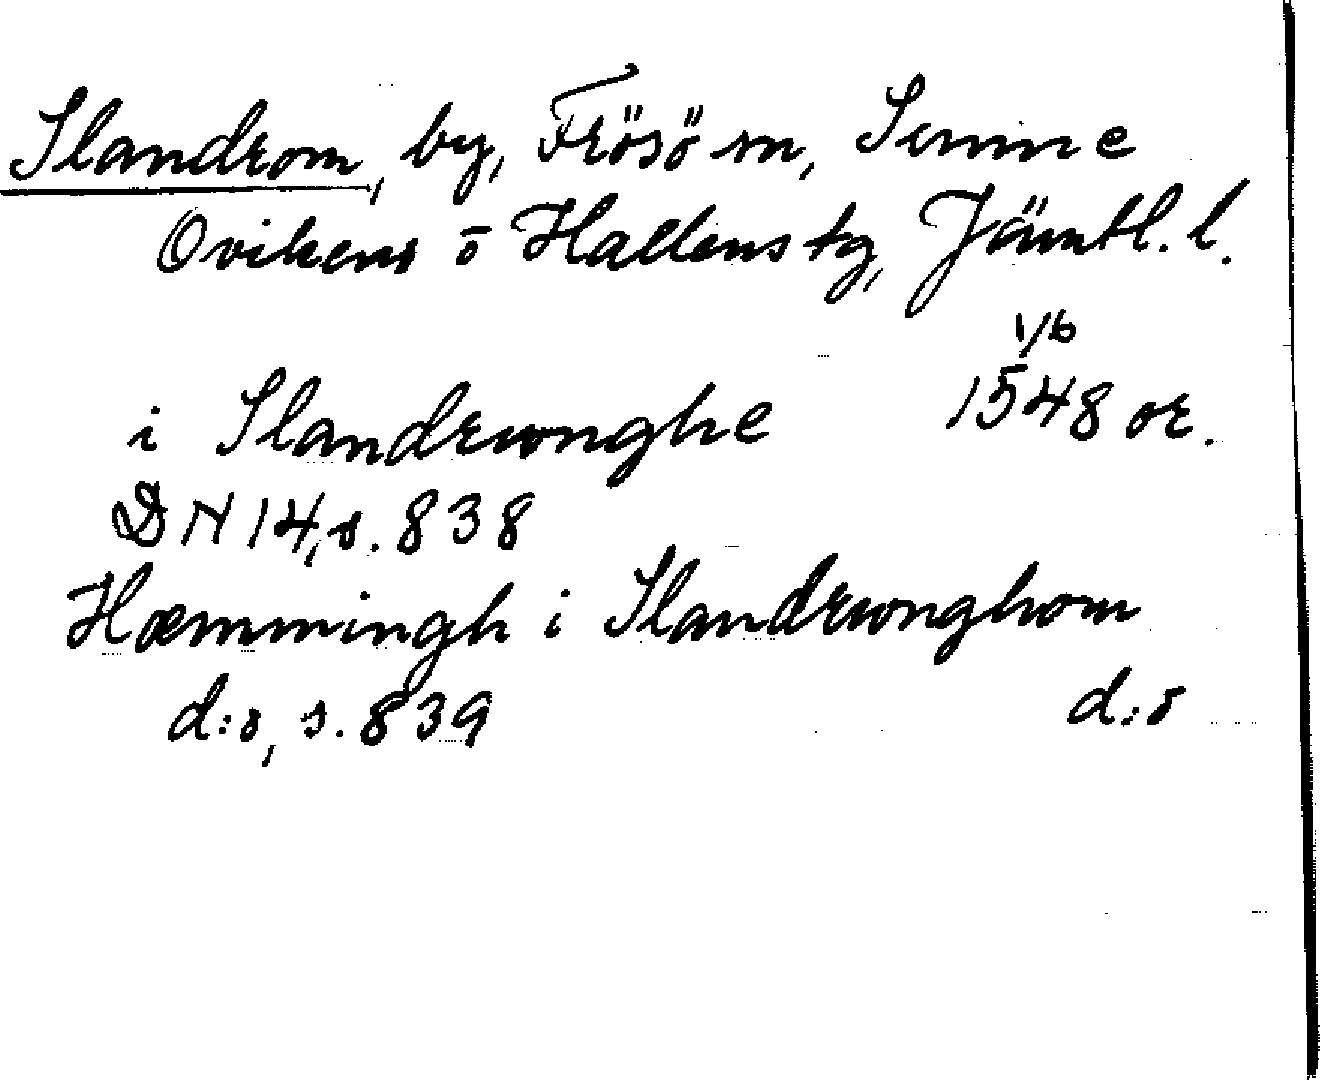 Slandrom, by, Frösö sn, Sunne
Ovikens o Hallens tg, Jämtl. l.
1/6
i Slandrwnghe 1548 or.
DN 14, s. 838
Hæmmingh i Slandrwnghom
d:o, s. 839 d:o